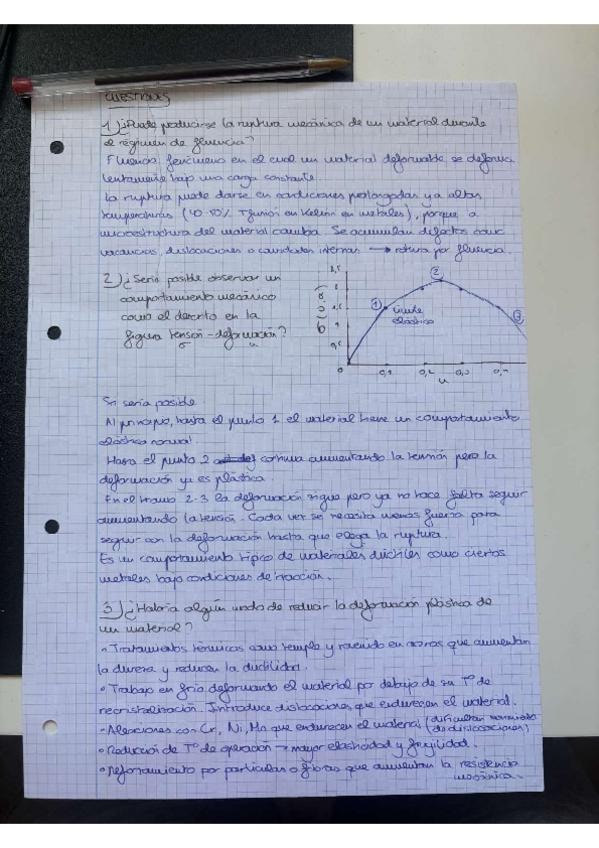 CUESTIONES
1) ¿Puede producirse la ruptura mecánica de un material durante
el régimen de fluencia?
Fluencia: fenómeno en el cual un material deformable se deforma
lentamente bajo una carga constante.
La ruptura puede darse en condiciones prolongadas y a altas
temperaturas (40-50% T fusión en Kelvin en metales), porque a
microestructura del material cambia. Se acumulan defectos como
vacancias, dislocaciones o cavidades internas → rotura por fluencia.
2) ¿Sería posible observar un
comportamiento mecánico
como el descrito en la
figura tensión-deformación?
σ u
2
1
límite
elástico
3
0 0,1 0,2 0,3
u
Sí sería posible
Al principio, hasta el punto 1 el material tiene un comportamiento
elástico normal.
Hasta el punto 2 continua aumentando la tensión pero la
deformación ya es plástica.
En el tramo 2-3 la deformación sigue pero ya no hace falta seguir
aumentando la tensión. Cada vez se necesita menos fuerza para
seguir con la deformación hasta que llega la ruptura.
Es un comportamiento típico de materiales dúctiles como ciertos
metales bajo condiciones de tracción.
3) ¿Habría algún modo de reducir la deformación plástica de
un material?
• Tratamientos térmicos como temple y revenido en aceros que aumentan
la dureza y reducen la ductilidad.
• Trabajo en frío deformando el material por debajo de su Tº de
recristalización. Introduce dislocaciones que endurecen el material.
• Aleaciones con Cr, Ni, Mn que endurecen el material (dificultan movimiento
de dislocaciones)
• Reducción de Tº de operación → mayor elasticidad y fragilidad.
• Reforzamiento por partículas o fibras que aumentan la resistencia
mecánica.